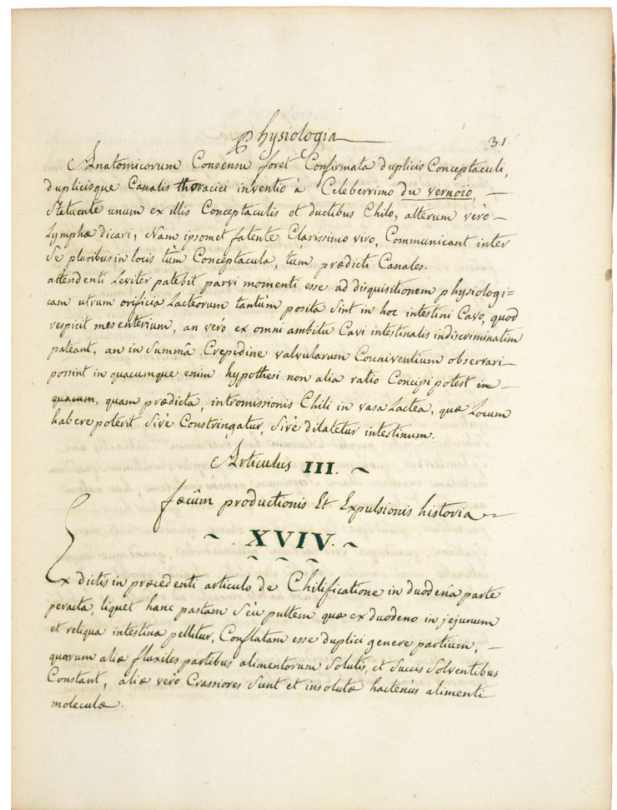 Physiologia
31
Anatomicorum Consensu foret Confirmata duplicis Conceptaculi,
duplicisque Canalis thoracici inventio a Celeberrimo du vernoio, –
Statuente unum ex illis Conceptaculis et ductibus Chilo, alterum verò –
Lymphæ dicari, Nam ipsomet fatente Clarissimo viro, Communicant inter
Se pluribus in locis tùm Conceptacula, tum prædicti Canales.
attendenti Leviter patebit parvi momenti esse ad disquisitionem physiologi=
cam utrum orificia Lacteorum tantùm posita Sint in hoc intestini Cavo, quod
respicit mesenterium, an verò ex omni ambitu Cavi intestinalis indiscriminatim
pateant, an in Summâ Crepidine valvularum Conniventium observari –
possint in quacumque enim hypothesi non alia ratio Concipi potest in –
quacum, quam prædicta, intromissionis Chili in vasa Lactea, quæ Locum
habere poterit Sivè Constringatur, Sivè dilatetur intestinum.
Articulus III. ~
fæcûm productionis Et Expulsionis historia ~
~ . XVIV. ~
Ex dictis in præcedenti articulo de Chilificatione in duodena parte
peracta, liquet hanc pastam Sèu pultem quæ ex duodeno in jejunum
et reliqua intestina pellitur, Conflatam esse duplici genere partium, –
quarum aliæ fluxiles partibus alimentorum Solutis, et Succis Solventibus
Constant, aliæ verò Crassiores Sunt et insolutæ hactenùs alimenti
moleculæ.